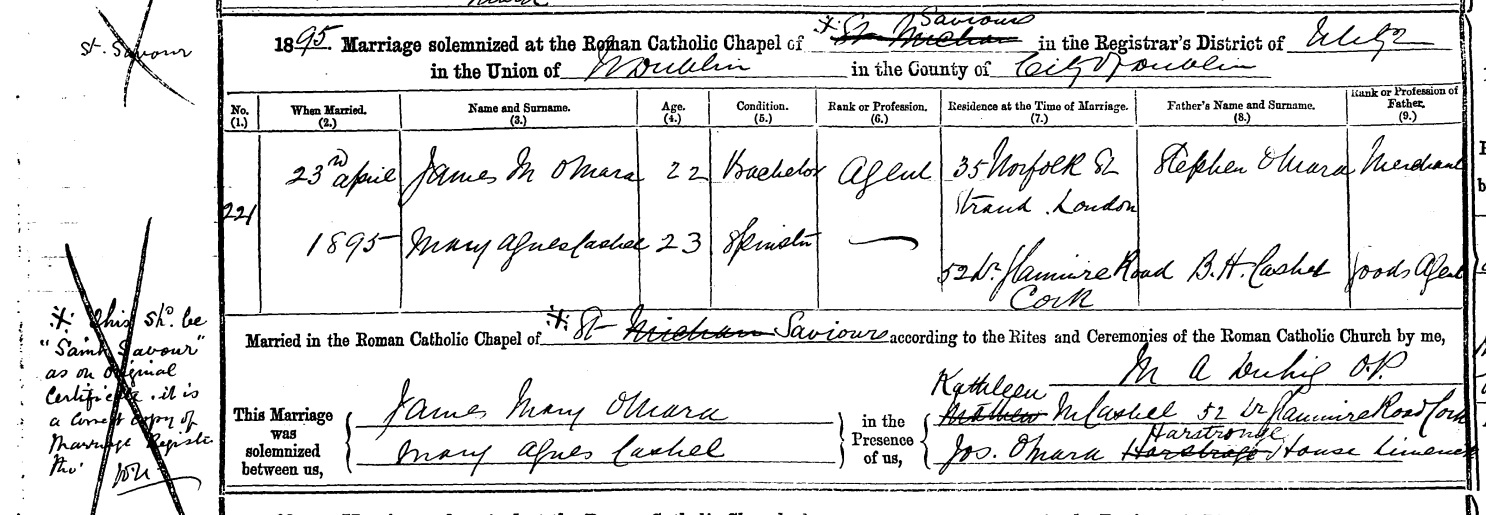 St. Saviour
Saviours
1895. Marriage solemnized at the Roman Catholic Chapel of * St Michan in the Registrar's District of
in the Union of N Dublin in the County of City of Dublin
No. When Married. Name and Surname. Age. Condition. Rank or Profession. Residence at the Time of Marriage. Father's Name and Surname. Rank or Profession of Father.
(1.) (2.) (3.) (4.) (5.) (6.) (7.) (8.) (9.)
221 23rd April James M OMara 22 Bachelor Agent 35 Norfolk St Stephen OMara Merchant
Strand. London
1895 Mary Agnes Cashel 23 Spinster — 52 Lr. Glanmire Road B. H. Cashel Goods Agent
Cork
Married in the Roman Catholic Chapel of * St Michan Saviours according to the Rites and Ceremonies of the Roman Catholic Church by me,
M A Duhig O.P.
This Marriage was solemnized between us,
James Mary OMara
Mary Agnes Cashel
in the Presence of us,
Kathleen
Mathew M Cashel 52 Lr Glanmire Road Cork
Harstronge
Jos. OMara House Limerick
* This shd. be
"Saint Saviour"
as on Original
Certificate. it is
a correct copy of
Marriage Register
tho'